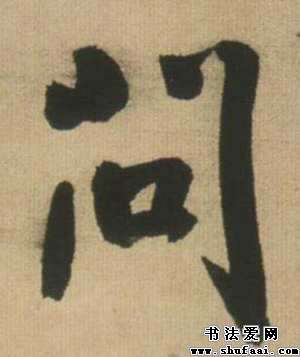 问
书法爱网
www.shufaai.com